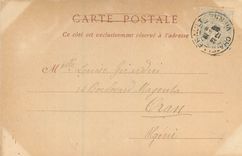 CARTE POSTALE
Ce côté est exclusivement réservé à l'adresse
Mlle Louise Girardin
12 Boulevard Magenta
Oran
Algérie